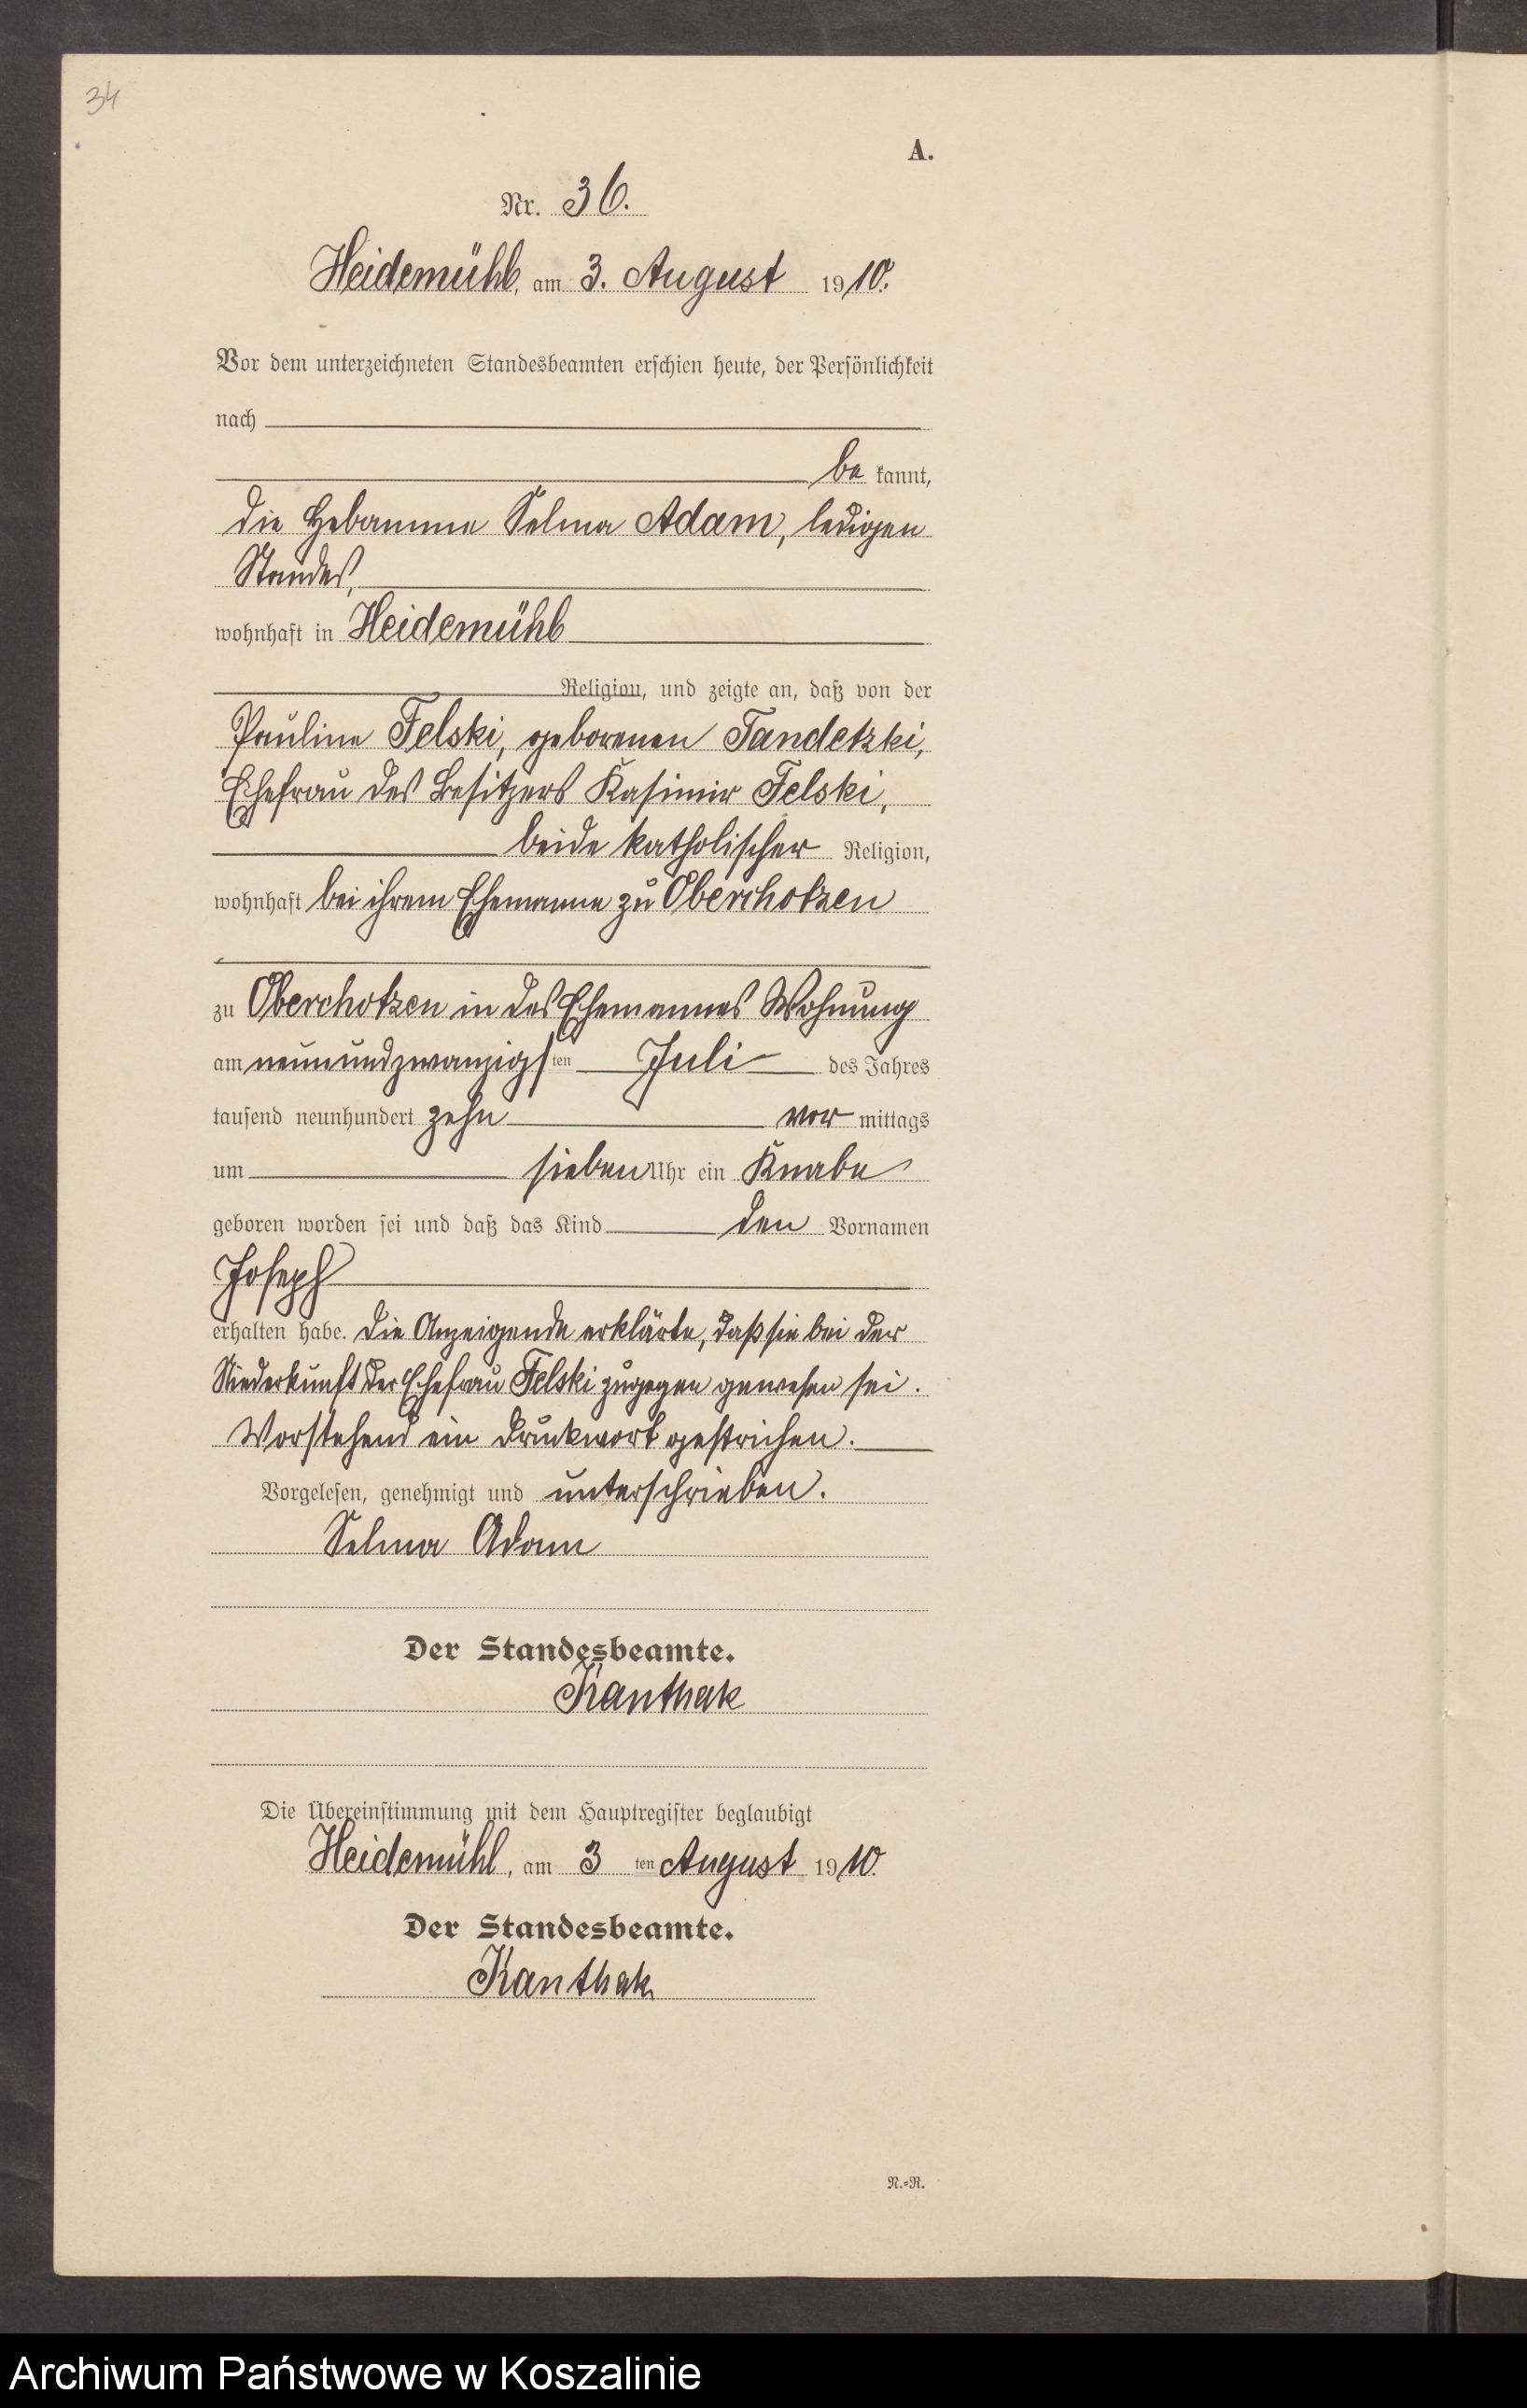 34
A.
Nr. 36.
Heidemühl, am 3. August 1910.
Vor dem unterzeichneten Standesbeamten erschien heute, der Persönlichkeit
nach
be kannt,
die Hebamme Selma Adam, ledigen
Standes,
wohnhaft in Heidemühl
Religion, und zeigte an, daß von der
Pauline Felski, geborenen Tandetzki,
Ehefrau des Besitzers Kasimir Felski,
beide katholischer Religion,
wohnhaft bei ihrem Ehemanne zu Oberchotzen
zu Oberchotzen in des Ehemannes Wohnung
am neunundzwanzigsten Juli des Jahres
tausend neunhundert zehn vor mittags
um sieben Uhr ein Knabe
geboren worden sei und daß das Kind den Vornamen
Joseph
erhalten habe. Die Anzeigende erklärte, daß sie bei der
Niederkunft der Ehefrau Felski zugegen gewesen sei.
Vorstehend ein Druckwort gestrichen.
Vorgelesen, genehmigt und unterschrieben.
Selma Adam
Der Standesbeamte.
Kanthak
Die Übereinstimmung mit dem Hauptregister beglaubigt
Heidemühl, am 3 ten August 1910.
Der Standesbeamte.
Kanthak
N.=R.
Archiwum Państwowe w Koszalinie